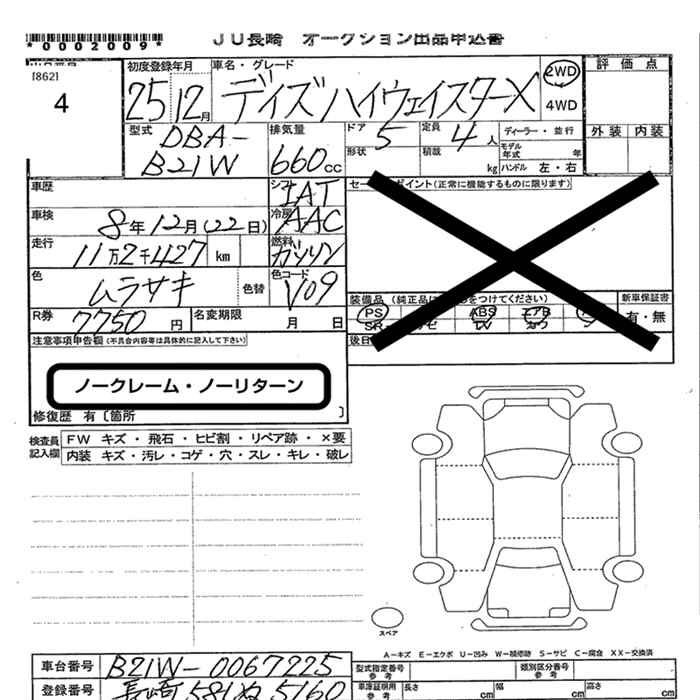 JU長崎 オークション出品申込書
*0002009*
[862]
4
初度登録年月 車名・グレード
25 12月 デイズハイウェイスターX 2WD 4WD
評価点
外装 内装
型式 DBA-B21W
排気量 660cc
ドア 5
形状
定員 4人
積載 kg
ディーラー・並行
モデル年式 年
ハンドル 左・右
車歴
シフト IAT
車検 8年12月(22日)
冷房 AAC
走行 11万2千427 km
燃料 ガソリン
色 ムラサキ 色替
色コード V09
R券 7750円
名変期限 月 日
セールスポイント(正常に機能するものに限ります)
装備品 (純正品に をつけてください)
新車保証書
有・無
PS ABS エアB
SR TV カワ
後日
注意事項申告欄(不具合内容等は具体的に記入して下さい)
ノークレーム・ノーリターン
修復歴 有〔箇所 〕
検査員記入欄
FW キズ・飛石・ヒビ割・リペア跡・×要
内装 キズ・汚レ・コゲ・穴・スレ・キレ・破レ
スペア
A-キズ E-エクボ U-凹み W-補修跡 S-サビ C-腐食 XX-交換済
車台番号 B21W-0067225
登録番号 長崎581ぬ5160
型式指定番号 参考
類別区分番号 参考
車庫証明用 参考 長さ cm 幅 cm 高さ cm